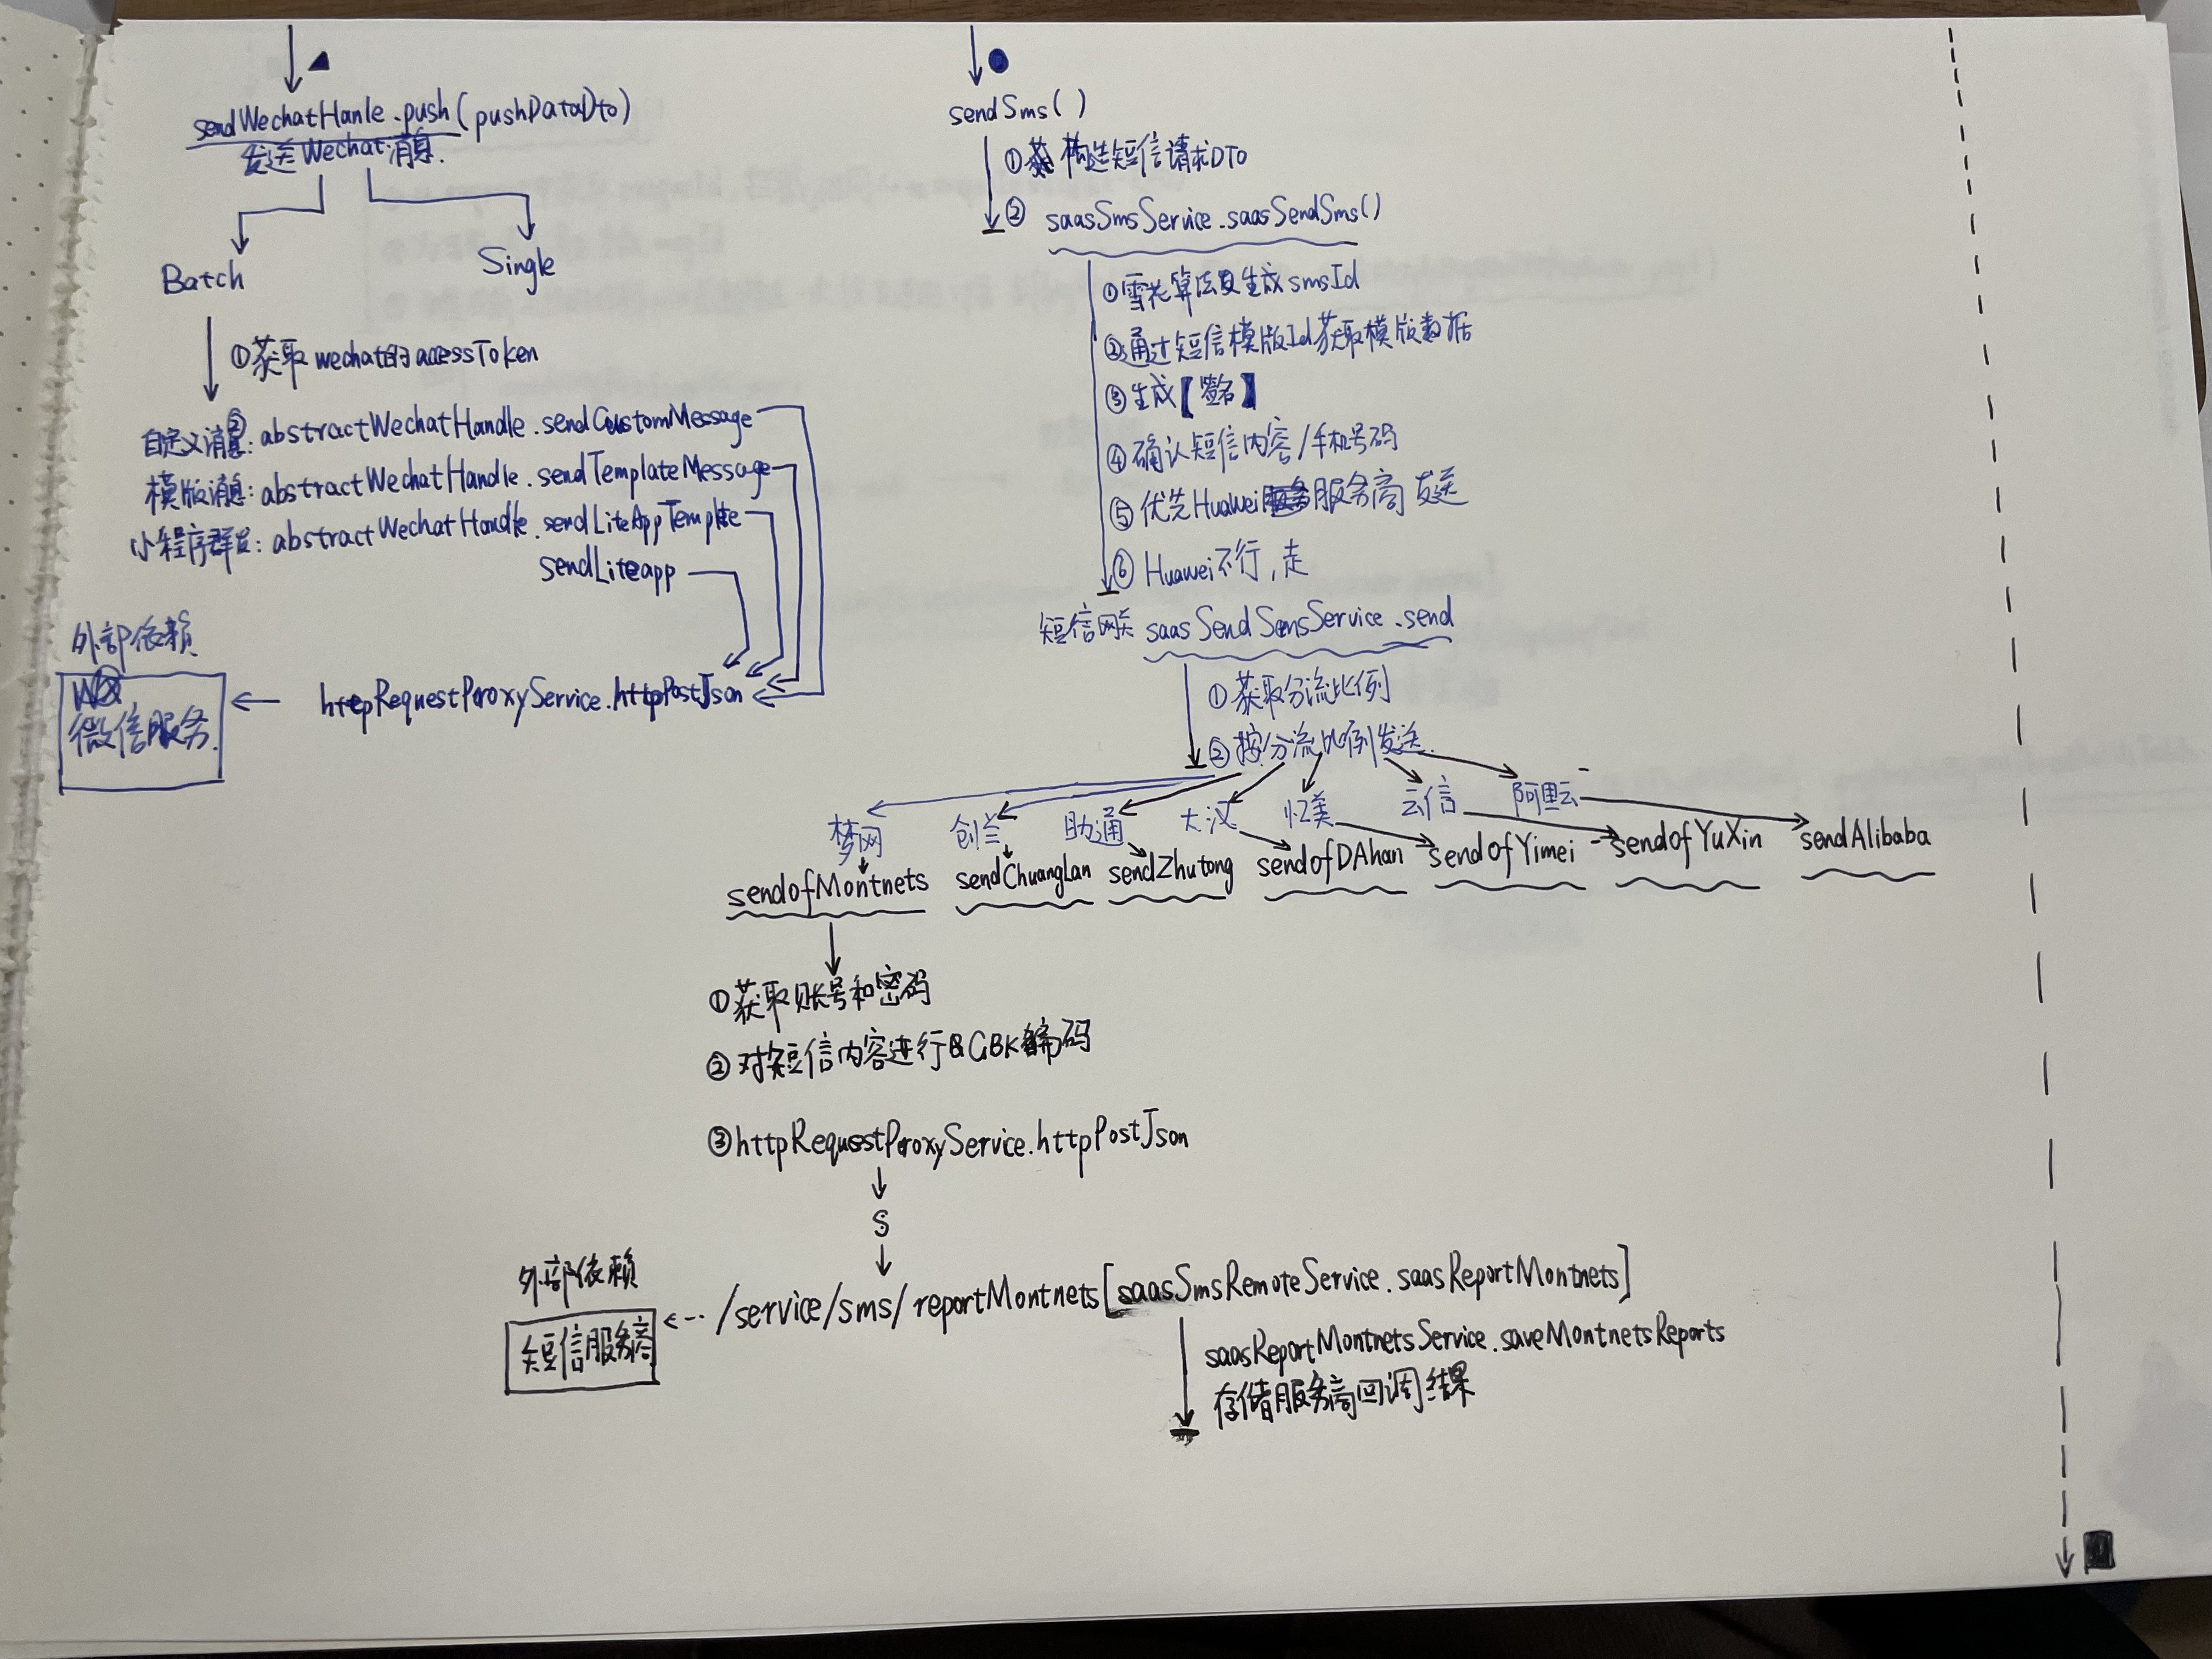 sendWechatHanle.push(pushDataDto)
发送Wechat消息.
Batch
Single
①获取wechat的accessToken
②
自定义消息: abstractWechatHandle.sendCustomMessage
模版消息: abstractWechatHandle.sendTemplateMessage
小程序群发: abstractWechatHandle.sendLiteAppTemplate
sendLiteapp
外部依赖
微信服务.
httpRequestProxyService.httpPostJson
sendSms()
①构造短信请求DTO
② saasSmsService.saasSendSms()
①雪花算法生成smsId
②通过短信模版Id获取模版数据
③生成【签名】
④确认短信内容/手机号码
⑤优先Huawei服务商发送
⑥Huawei不行,走
短信网关 saasSendSmsService.send
①获取分流比例
②按分流比例发送.
梦网 创兰 助通 大汉 忆美 云信 阿里云
sendofMontnets sendChuangLan sendZhutong sendofDAhan sendofYimei sendofYuXin sendAlibaba
①获取账号和密码
②对短信内容进行GBK编码
③httpRequestProxyService.httpPostJson
S
外部依赖
短信服务商
/service/sms/reportMontnets[saasSmsRemoteService.saasReportMontnets]
saasReportMontnetsService.saveMontnetsReports
存储服务商回调结果